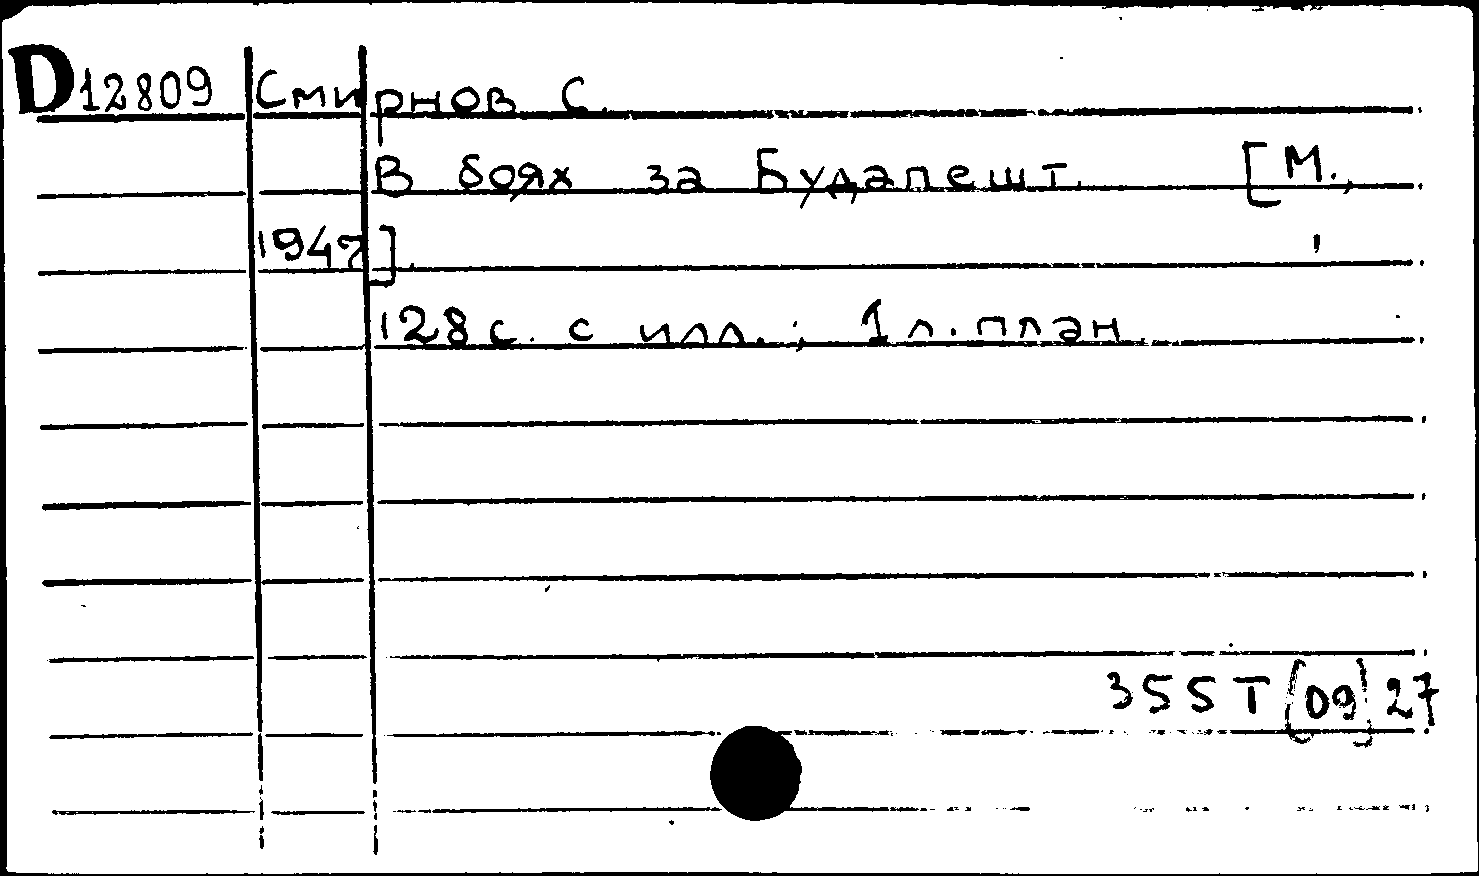 D12809 Смирнов С.
В боях за Будапешт. [М.,
1947].
128 с. с илл.; 1 л. план.
355Т(09)27